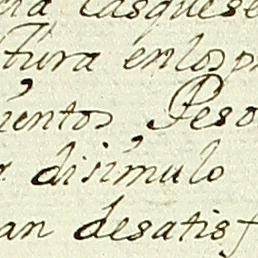 casquese
tura en los p
ientos, Peso
disimulo
an desatisf